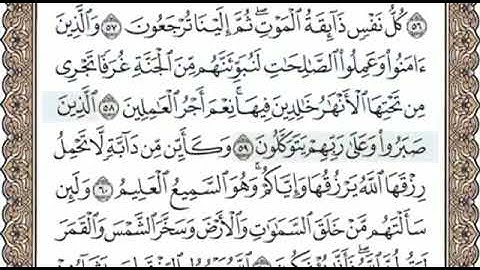 ٥٦ كُلُّ نَفْسٍ ذَآئِقَةُ ٱلْمَوْتِ ۖ ثُمَّ إِلَيْنَا تُرْجَعُونَ ٥٧ وَٱلَّذِينَ
ءَامَنُوا۟ وَعَمِلُوا۟ ٱلصَّٰلِحَٰتِ لَنُبَوِّئَنَّهُم مِّنَ ٱلْجَنَّةِ غُرَفًا تَجْرِى
مِن تَحْتِهَا ٱلْأَنْهَٰرُ خَٰلِدِينَ فِيهَا ۚ نِعْمَ أَجْرُ ٱلْعَٰمِلِينَ ٥٨ ٱلَّذِينَ
صَبَرُوا۟ وَعَلَىٰ رَبِّهِمْ يَتَوَكَّلُونَ ٥٩ وَكَأَيِّن مِّن دَآبَّةٍ لَّا تَحْمِلُ
رِزْقَهَا ٱللَّهُ يَرْزُقُهَا وَإِيَّاكُمْ ۚ وَهُوَ ٱلسَّمِيعُ ٱلْعَلِيمُ ٦٠ وَلَئِن
سَأَلْتَهُم مَّنْ خَلَقَ ٱلسَّمَٰوَٰتِ وَٱلْأَرْضَ وَسَخَّرَ ٱلشَّمْسَ وَٱلْقَمَرَ